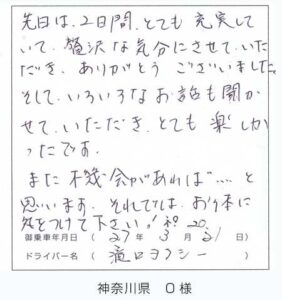 先日は、2日間、とても充実して
いて、贅沢な気分にさせていた
だき、ありがとうございました。
そして、いろいろなお話も聞か
せていただき、とても楽しか
ったです。
また機会があれば……と
思います。それでは、お体に
気をつけて下さい!
御乗車年月日 ( 27年 3月 21日)
ドライバー名 ( 滝口ヨフシー )
神奈川県 O様